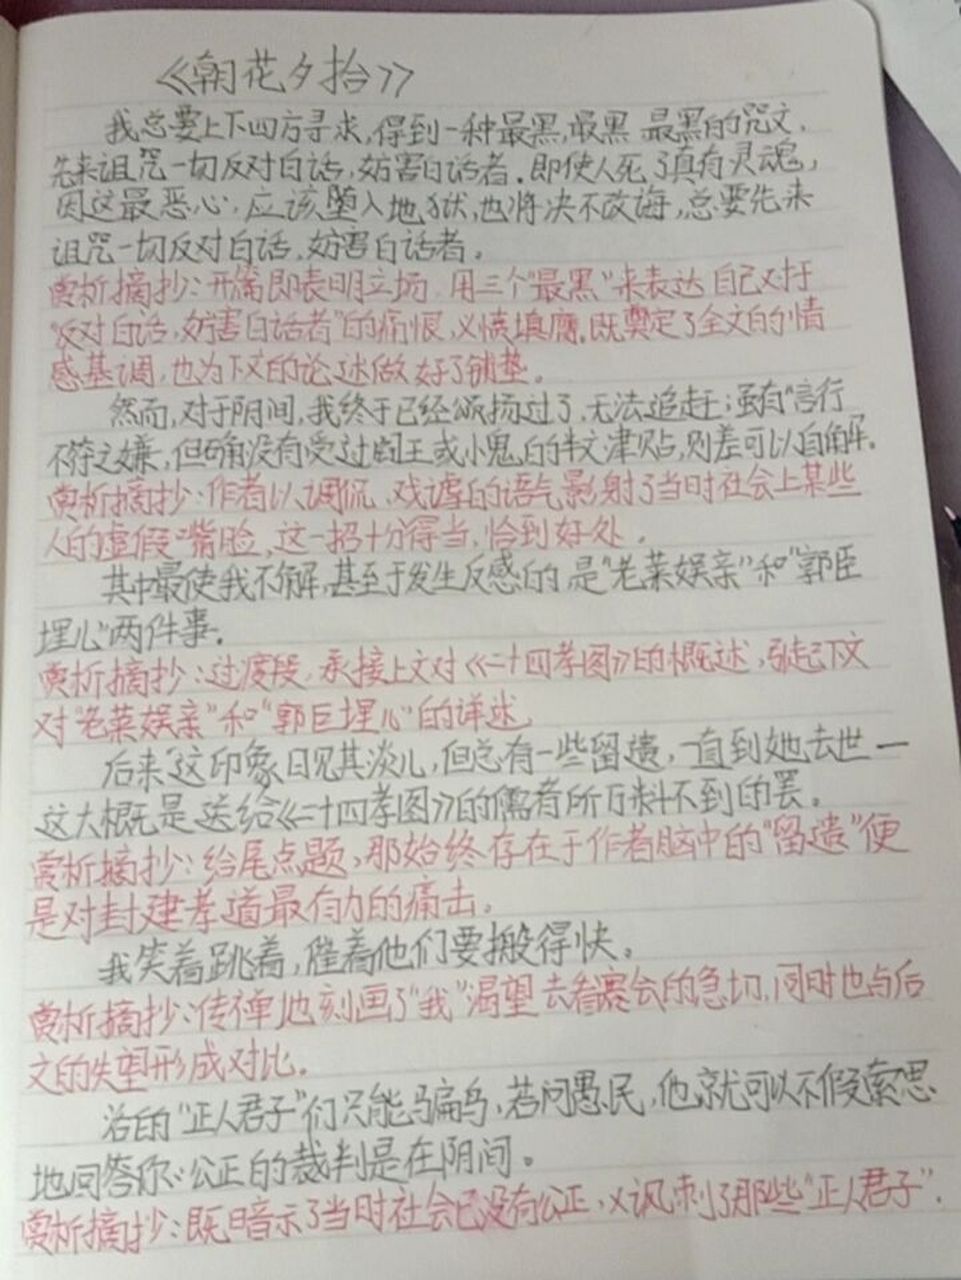 《朝花夕拾》
我总要上下四方寻求,得到一种最黑,最黑 最黑的咒文,
先来诅咒一切反对白话,妨害白话者.即使人死了真有灵魂,
因这最恶心,应该堕入地狱,也将决不改悔,总要先来
诅咒一切反对白话,妨害白话者。
赏析摘抄:开篇即表明立场,用三个"最黑"来表达自己对于
"反对白话,妨害白话者"的痛恨,义愤填膺,既奠定了全文的情
感基调,也为下文的论述做好了铺垫。
然而,对于阴间,我终于已经颂扬过了,无法追赶;虽有"言行
不符之嫌,但确没有受过阎王或小鬼的半文津贴,则差可以自解。
赏析摘抄:作者以调侃,戏谑的语气影射了当时社会上某些
人的虚假嘴脸,这一招十分得当,恰到好处.
其中最使我不解,甚至于发生反感的,是"老莱娱亲"和"郭巨
埋儿"两件事.
赏析摘抄:过度段,承接上文对《二十四孝图》的概述,引起下文
对"老莱娱亲"和"郭巨埋儿"的详述
后来这印象日见其淡儿,但总有一些留遗,一直到她去世一
这大概是送给《二十四孝图》的儒者所万料不到的罢。
赏析摘抄:给尾点题,那始终存在于作者脑中的"留遗"便
是对封建孝道最有力的痛击。
我笑着跳着,催着他们要搬得快。
赏析摘抄:传神地刻画了"我"渴望去看赛会的急切,同时也与后
文的失望形成对比。
活的"正人君子"们只能骗鸟,若问愚民,他就可以不假索思
地回答你:公正的裁判是在阴间。
赏析摘抄:既暗示了当时社会已没有公正,又讽刺了那些"正人君子".